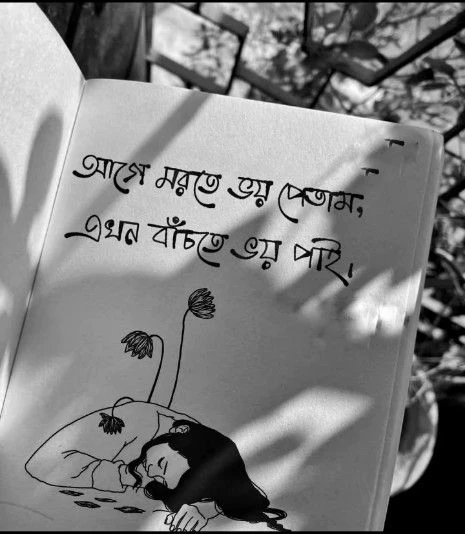 আগে মরতে ভয় পেতাম,
এখন বাঁচতে ভয় পাই।